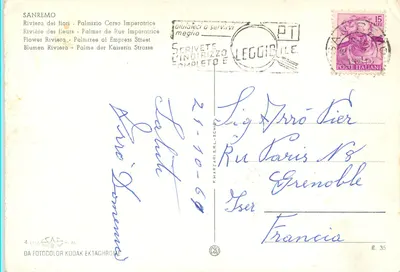 SANREMO
Riviera dei fiori - Palazzio Corso Imperatrice
Riviera des fleurs - Palmier de Rue Imperatrice
Flower Riviera - Palmtree of Express Street
Blumen Riviera - Palme der Kaiserin Strasse
aiutateci a servirvi
meglio
SCRIVETE
L'INDIRIZZO
COMPLETO E
LEGGIBILE
PT
15
POSTE ITALIANE
21-10-69
Saluti
Arrò Domenica
Sig Arrò Pier
Ru Paris N8
Grenoble
Iser
Francia
DA FOTOCOLOR KODAK EKTACHROME